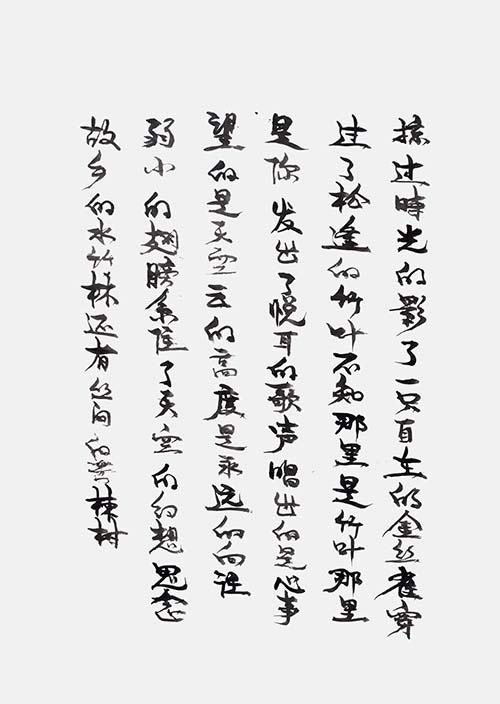 掠过時光的影了一只自在的金丝雀穿
过了松逢的竹叶不知那里是竹叶那里
是你发出了悦耳的歌声唱出的是心事
望的是天空云的高度是永远的向往
弱小的翅膀了天空的幻想思念
故乡的水竹林还有丛间的苦楝树